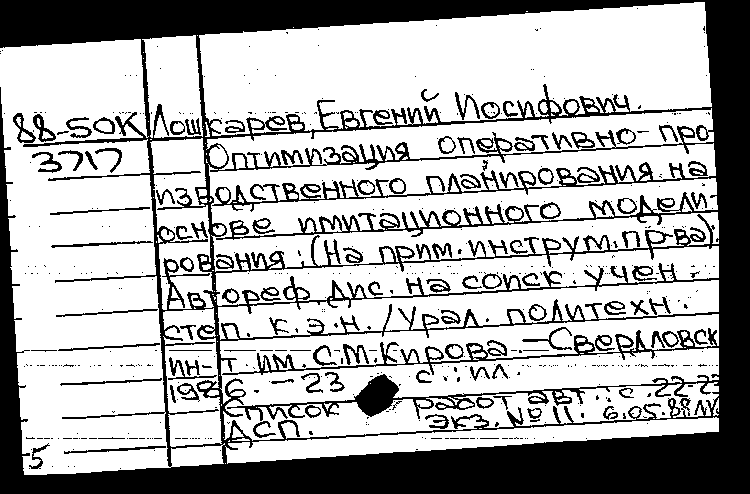 88-50К Лошкарев, Евгений Иосифович.
3717 Оптимизация оперативно-про-
изводственного планирования на
основе имитационного модели-
рования: (На прим. инструм. пр-ва):
Автореф. дис. на соиск. учен.
степ. к.э.н. / Урал. политехн.
ин-т им. С.М. Кирова. — Свердловск
1986. — 23 с.: ил.
Список работ авт.: с. 22-23
ДСП. Экз. № 11. 6.05.88
5